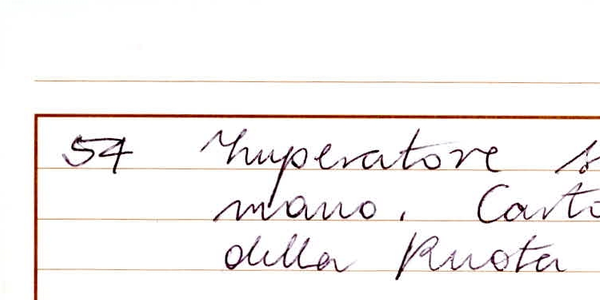 54 Imperatore s
mano. Carto
della Ruota